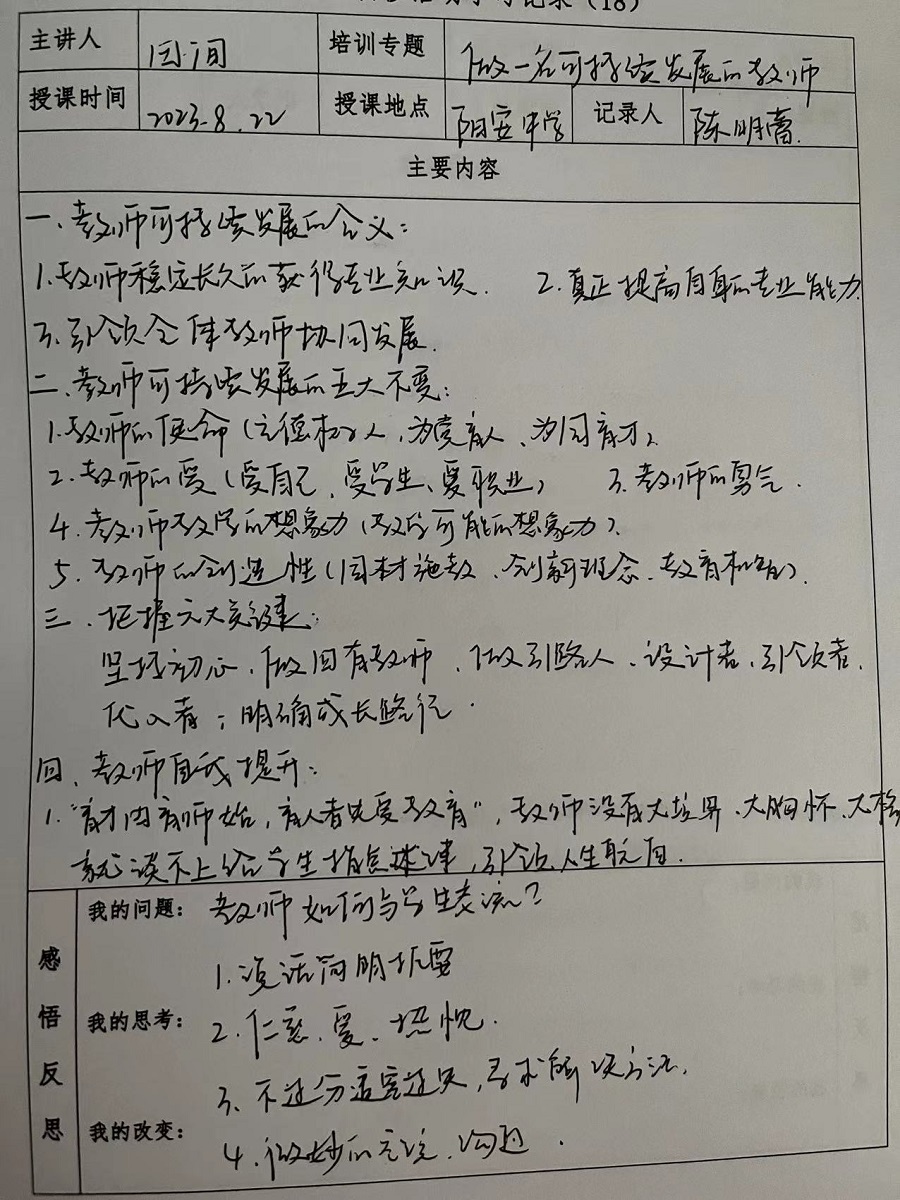 记录（18）
主讲人 培训专题 做一名可持续发展的教师
授课时间 2023.8.22 授课地点 阳安中学 记录人 陈明蕾.
主要内容
一、教师可持续发展的含义：
1.教师稳定长久的获得专业知识. 2.真正提高自身的专业能力.
3.引领全体教师协同发展.
二、教师可持续发展的五大不变：
1.教师的使命（立德树人，为党育人、为国育才）
2.教师的爱（爱自己、爱学生、爱职业） 3.教师的勇气.
4.教师教学的想象力（教学可能的想象力）.
5.教师的创造性（因材施教、创新理念、教育机智）.
三、把握六大关键：
坚持初心，做四有教师，做引路人、设计者、引领者、
化人者；明确成长路径.
四、教师自我提升：
1.“育才由育师始，育人者先受教育”，教师没有大境界、大胸怀、大格
就谈不上给学生指点迷津，引领人生航向.
感悟反思
我的问题： 教师如何与学生交流？
1.说话简明扼要
我的思考： 2.仁慈、爱、
3.不过分追究过失，寻求解决方法.
我的改变： 4.做 的 沟通.